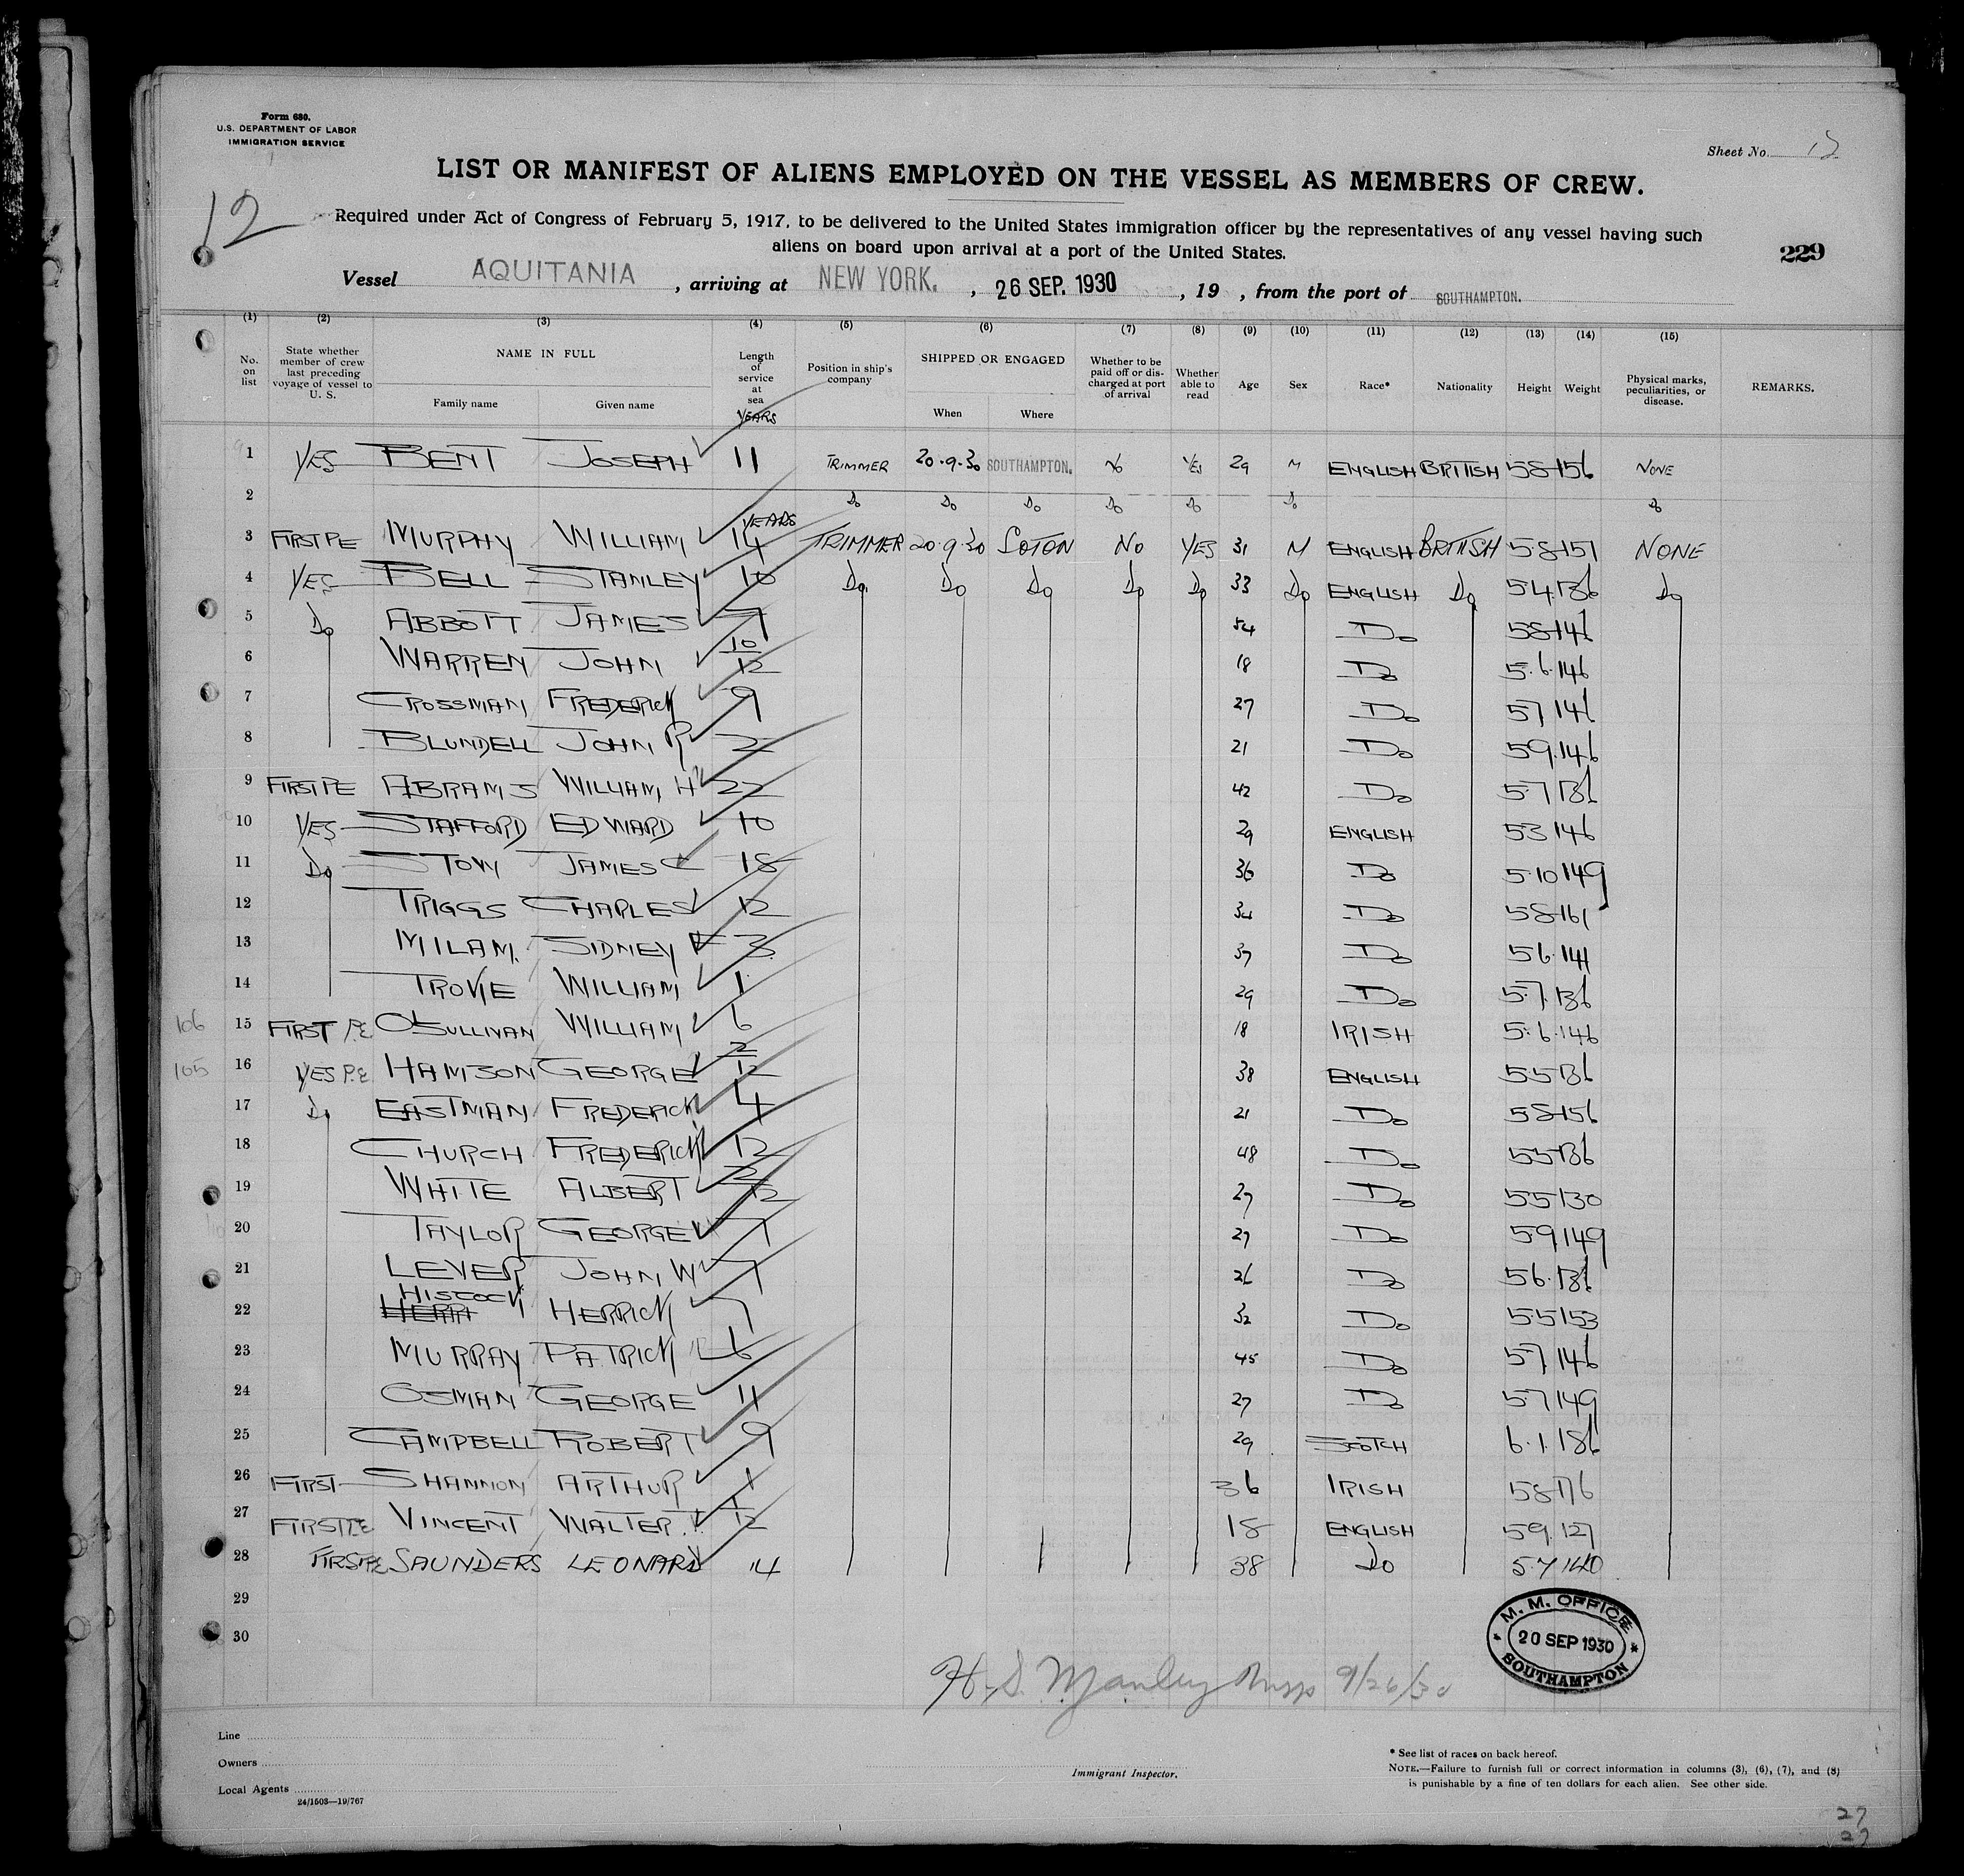 Form 680.
U.S. DEPARTMENT OF LABOR
IMMIGRATION SERVICE
Sheet No. 12
LIST OR MANIFEST OF ALIENS EMPLOYED ON THE VESSEL AS MEMBERS OF CREW.
12
Required under Act of Congress of February 5, 1917, to be delivered to the United States immigration officer by the representatives of any vessel having such
aliens on board upon arrival at a port of the United States.
229
Vessel AQUITANIA, arriving at NEW YORK., 26 SEP. 1930, 19 , from the port of SOUTHAMPTON.
(1) (2) (3) (4) (5) (6) (7) (8) (9) (10) (11) (12) (13) (14) (15)
No. on list State whether member of crew last preceding voyage of vessel to U. S. NAME IN FULL Family name Given name Length of service at sea YEARS Position in ship's company SHIPPED OR ENGAGED When Where Whether to be paid off or discharged at port of arrival Whether able to read Age Sex Race* Nationality Height Weight Physical marks, peculiarities, or disease. REMARKS.
1 YES BENT JOSEPH 11 TRIMMER 20.9.30 SOUTHAMPTON. No YES 29 M ENGLISH BRITISH 5.8 156 NONE
2 Do Do Do Do Do Do Do
3 FIRST PE MURPHY WILLIAM 14 YEARS TRIMMER 20.9.30 SOTON No YES 31 M ENGLISH BRITISH 5.8 151 NONE
4 YES BELL STANLEY 10 Do Do Do Do Do 33 Do ENGLISH Do 5.4 136 Do
5 Do ABBOTT JAMES 7 54 Do 5.8 146
6 WARREN JOHN 10/12 18 Do 5.6 146
7 CROSSMAN FREDERICK 9 27 Do 5.7 146
8 BLUNDELL JOHN R 2 21 Do 5.9 146
9 FIRST PE ABRAMS WILLIAM H 22 42 Do 5.7 136
10 YES STAFFORD EDWARD 10 29 ENGLISH 5.3 146
11 Do STOW JAMES C 18 36 Do 5.10 149
12 TRIGGS CHARLES 12 34 Do 5.8 161
13 MILAM. SIDNEY F 3 37 Do 5.6 141
14 TROKE WILLIAM 1 29 Do 5.7 136
106 15 FIRST P.E O'SULLIVAN WILLIAM 6 18 IRISH 5.6 146
105 16 YES P.E HAMSON GEORGE 2/12 38 ENGLISH 5.5 136
17 Do EASTMAN FREDERICK 4 21 Do 5.8 156
18 CHURCH FREDERICK 12 48 Do 5.5 136
19 WHITE ALBERT 2/12 27 Do 5.5 130
20 TAYLOR GEORGE 7 27 Do 5.9 149
21 LEVER JOHN W 7 26 Do 5.6 136
22 HISCOCK HERRICK 7 32 Do 5.5 153
23 MURRAY PATRICK 6 45 Do 5.7 146
24 OSMAN GEORGE 11 27 Do 5.7 149
25 CAMPBELL ROBERT 9 29 SCOTCH 6.1 186
26 FIRST SHANNON ARTHUR 1 36 IRISH 5.8 176
27 FIRST PE VINCENT WALTER. 1/12 18 ENGLISH 5.9 127
28 FIRST PE SAUNDERS LEONARD 14 38 Do 5.7 140
29
30
M. M. OFFICE
20 SEP 1930
SOUTHAMPTON
H. S. Manley Insp 9/26/30
Line
Owners
Local Agents
24/1503—19/767
Immigrant Inspector.
* See list of races on back hereof.
NOTE.—Failure to furnish full or correct information in columns (3), (6), (7), and (8)
is punishable by a fine of ten dollars for each alien. See other side.
27
27